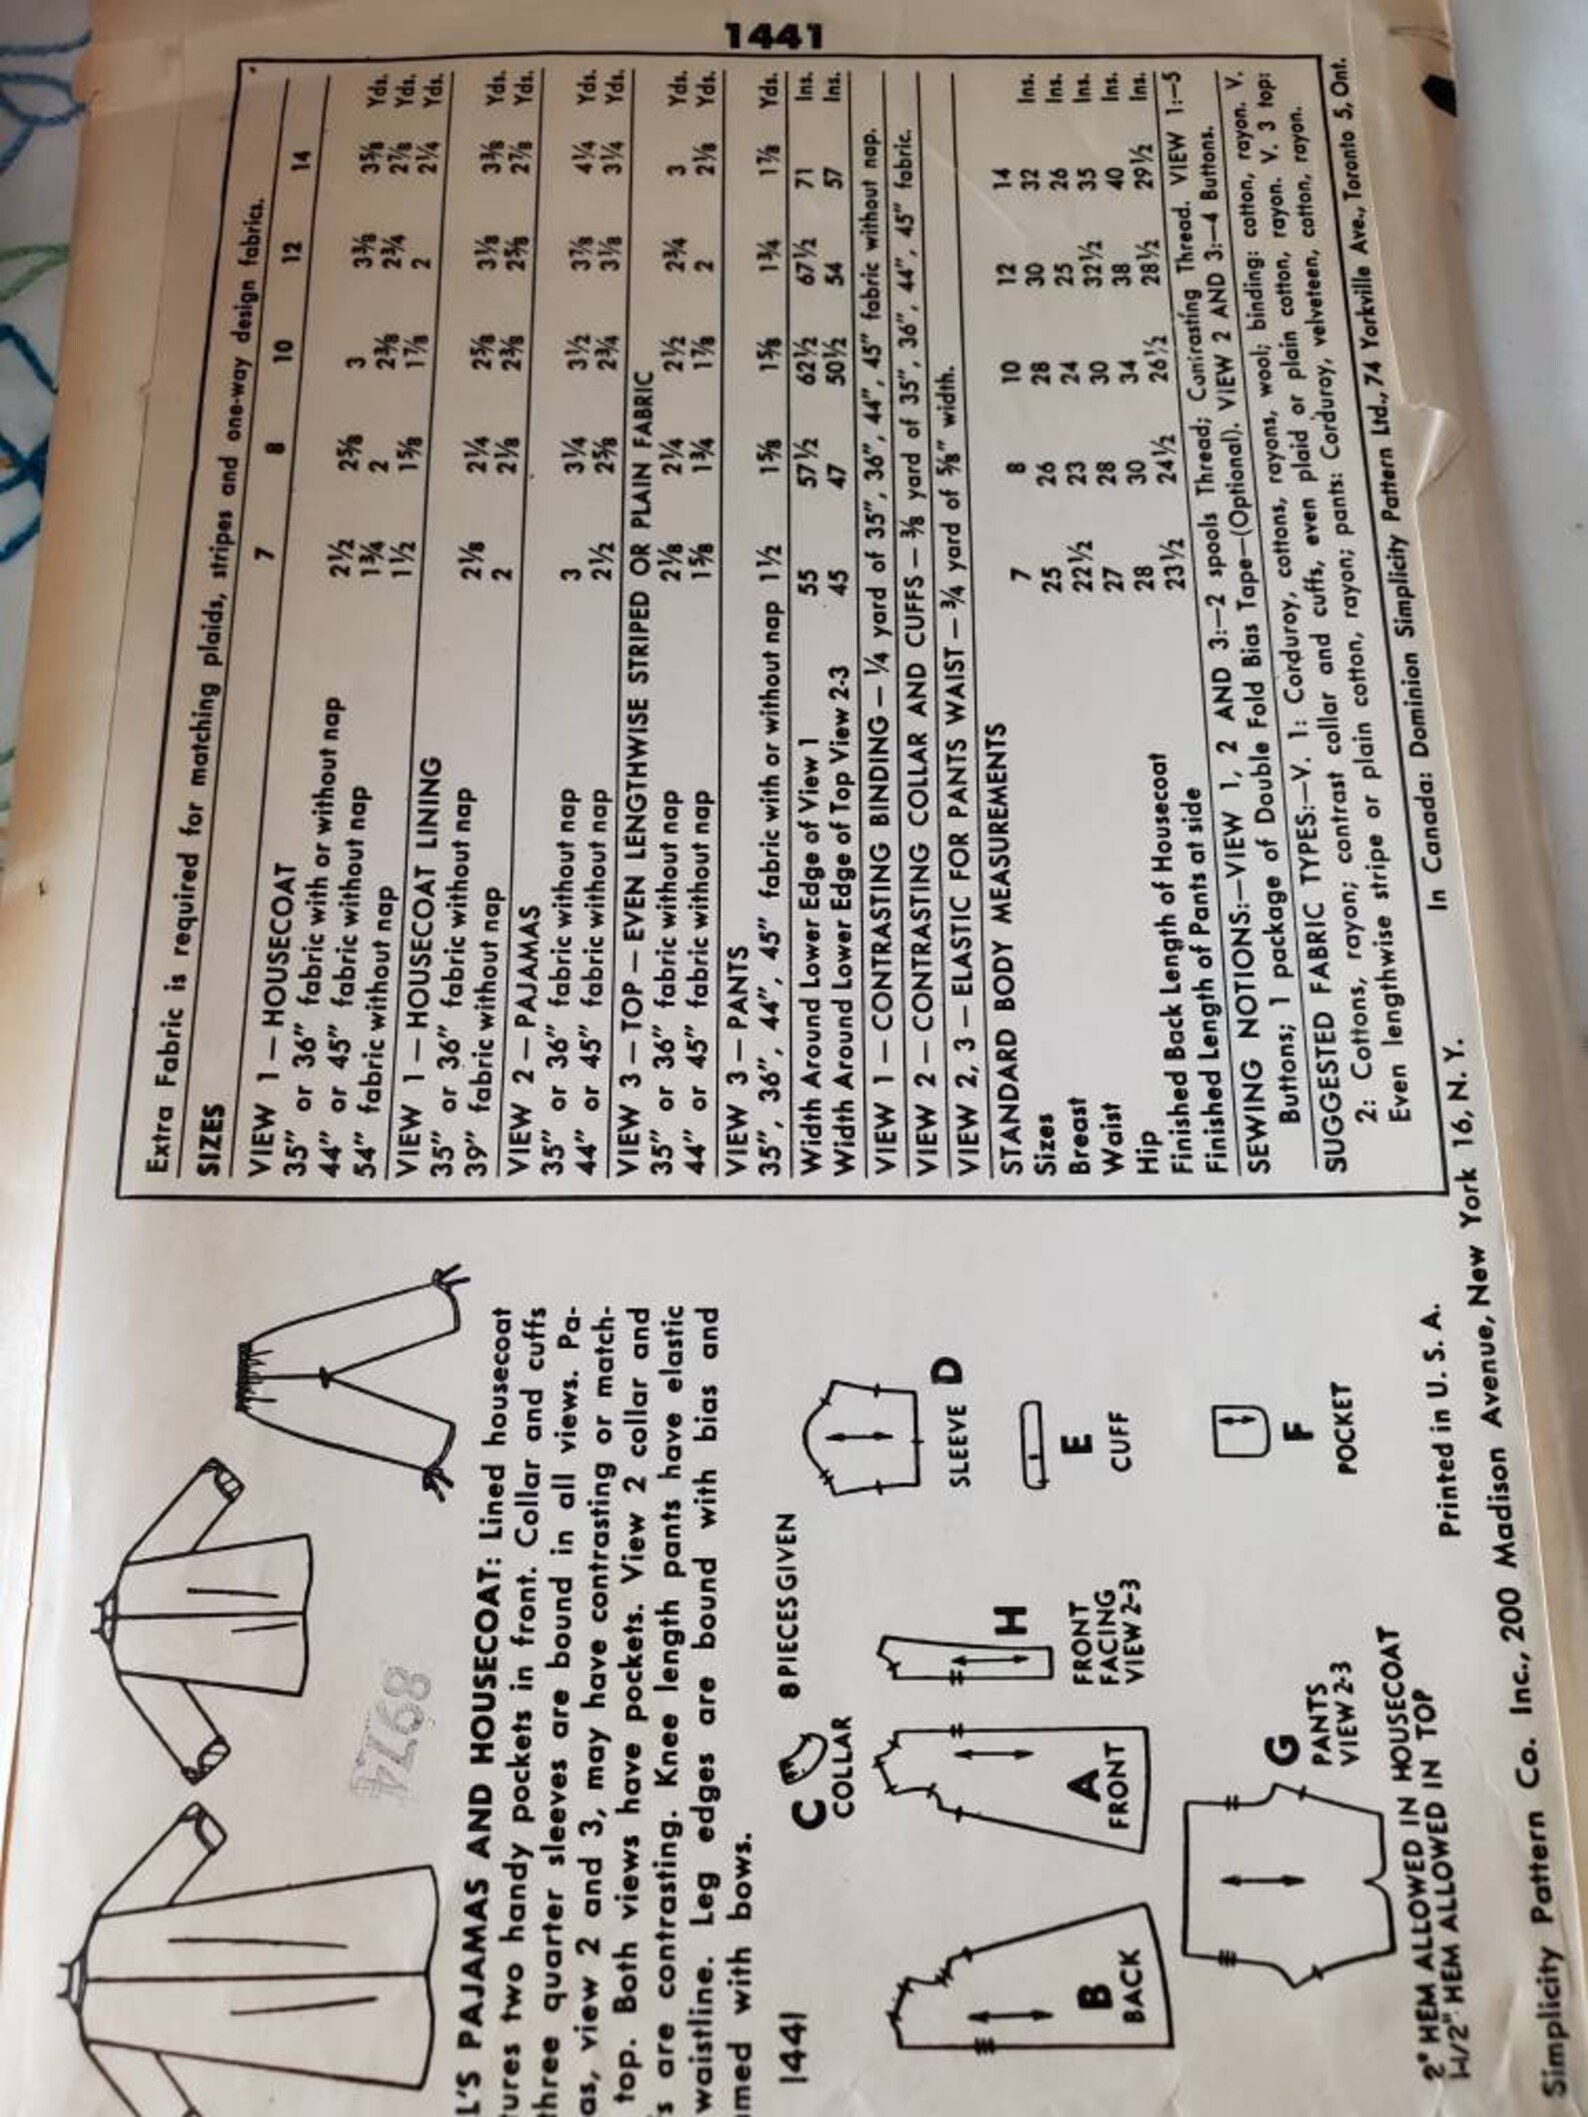 1441
Extra Fabric is required for matching plaids, stripes and one-way design fabrics.
SIZES 7 8 10 12 14
VIEW 1 — HOUSECOAT
35" or 36" fabric with or without nap 2½ 2⅝ 3 3⅜ 3⅝ Yds.
44" or 45" fabric without nap 1¾ 2 2⅜ 2¾ 2⅞ Yds.
54" fabric without nap 1½ 1⅝ 1⅞ 2 2¼ Yds.
VIEW 1 — HOUSECOAT LINING
35" or 36" fabric without nap 2⅛ 2¼ 2⅝ 3⅛ 3⅜ Yds.
39" fabric without nap 2 2⅛ 2⅜ 2⅝ 2⅞ Yds.
VIEW 2 — PAJAMAS
35" or 36" fabric without nap 3 3¼ 3½ 3⅞ 4¼ Yds.
44" or 45" fabric without nap 2½ 2⅝ 2¾ 3⅛ 3¼ Yds.
VIEW 3 — TOP — EVEN LENGTHWISE STRIPED OR PLAIN FABRIC
35" or 36" fabric without nap 2⅛ 2¼ 2½ 2¾ 3 Yds.
44" or 45" fabric without nap 1⅝ 1¾ 1⅞ 2 2⅛ Yds.
VIEW 3 — PANTS
35", 36", 44", 45" fabric with or without nap 1½ 1⅝ 1⅝ 1¾ 1⅞ Yds.
Width Around Lower Edge of View 1 55 57½ 62½ 67½ 71 Ins.
Width Around Lower Edge of Top View 2-3 45 47 50½ 54 57 Ins.
VIEW 1 — CONTRASTING BINDING — ¼ yard of 35", 36", 44", 45" fabric without nap.
VIEW 2 — CONTRASTING COLLAR AND CUFFS — ⅜ yard of 35", 36", 44", 45" fabric.
VIEW 2, 3 — ELASTIC FOR PANTS WAIST — ¾ yard of ⅝" width.
STANDARD BODY MEASUREMENTS
Sizes 7 8 10 12 14
Breast 25 26 28 30 32 Ins.
Waist 22½ 23 24 25 26 Ins.
Hip 27 28 30 32½ 35 Ins.
Finished Back Length of Housecoat 28 30 34 38 40 Ins.
Finished Length of Pants at side 23½ 24½ 26½ 28½ 29½ Ins.
SEWING NOTIONS:—VIEW 1, 2 AND 3:—2 spools Thread; Contrasting Thread. VIEW 1:—5
Buttons; 1 package of Double Fold Bias Tape—(Optional). VIEW 2 AND 3:—4 Buttons.
SUGGESTED FABRIC TYPES:—V. 1: Corduroy, cottons, rayons, wool; binding: cotton, rayon. V.
2: Cottons, rayon; contrast collar and cuffs, even plaid or plain cotton, rayon. V. 3 top:
Even lengthwise stripe or plain cotton, rayon; pants: Corduroy, velveteen, cotton, rayon.
In Canada: Dominion Simplicity Pattern Ltd., 74 Yorkville Ave., Toronto 5, Ont.
8974
L'S PAJAMAS AND HOUSECOAT: Lined housecoat
tures two handy pockets in front. Collar and cuffs
three quarter sleeves are bound in all views. Pa-
as, view 2 and 3, may have contrasting or match-
top. Both views have pockets. View 2 collar and
s are contrasting. Knee length pants have elastic
waistline. Leg edges are bound with bias and
med with bows.
1441
8 PIECES GIVEN
C
COLLAR
SLEEVE D
B
BACK
A
FRONT
H
FRONT
FACING
VIEW 2-3
E
CUFF
G
PANTS
VIEW 2-3
F
POCKET
2" HEM ALLOWED IN HOUSECOAT
1-1/2" HEM ALLOWED IN TOP
Printed in U. S. A.
Simplicity Pattern Co. Inc., 200 Madison Avenue, New York 16, N. Y.